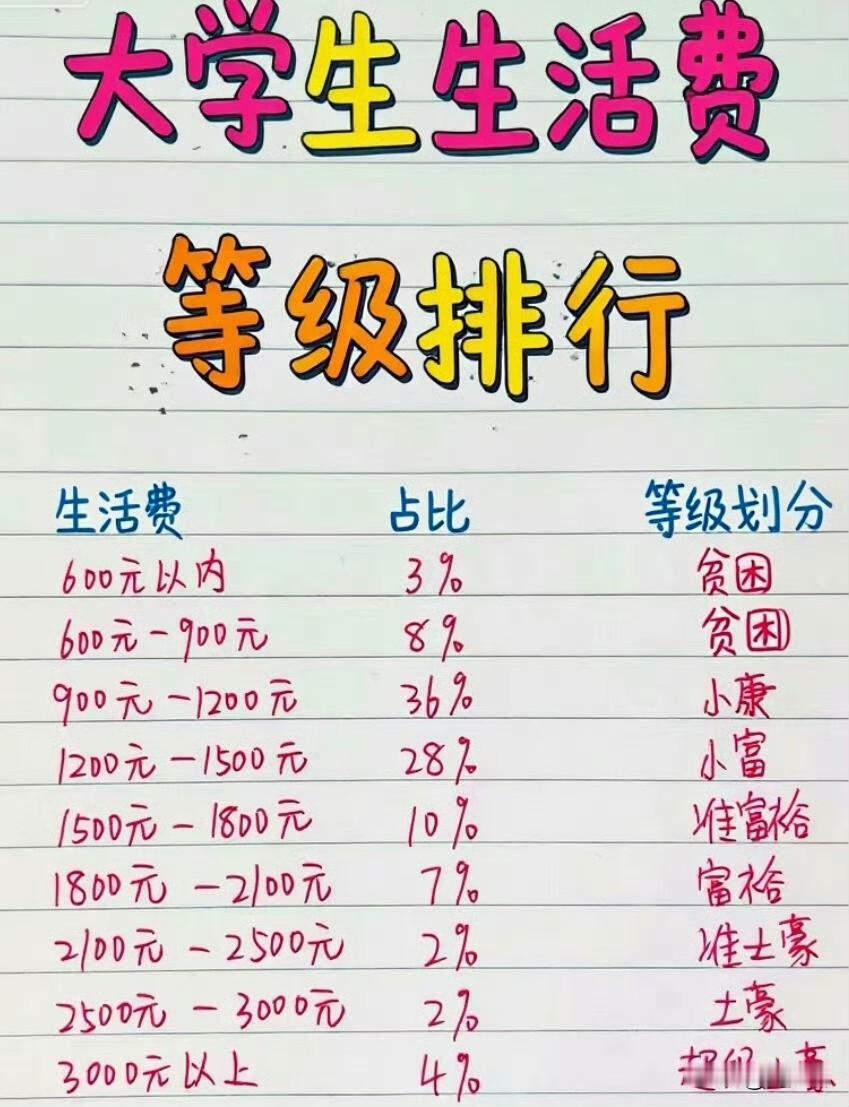 大学生生活费
等级排行
生活费 占比 等级划分
600元以内 3% 贫困
600元-900元 8% 贫困
900元-1200元 36% 小康
1200元-1500元 28% 小富
1500元-1800元 10% 准富裕
1800元-2100元 7% 富裕
2100元-2500元 2% 准土豪
2500元-3000元 2% 土豪
3000元以上 4% 超级土豪